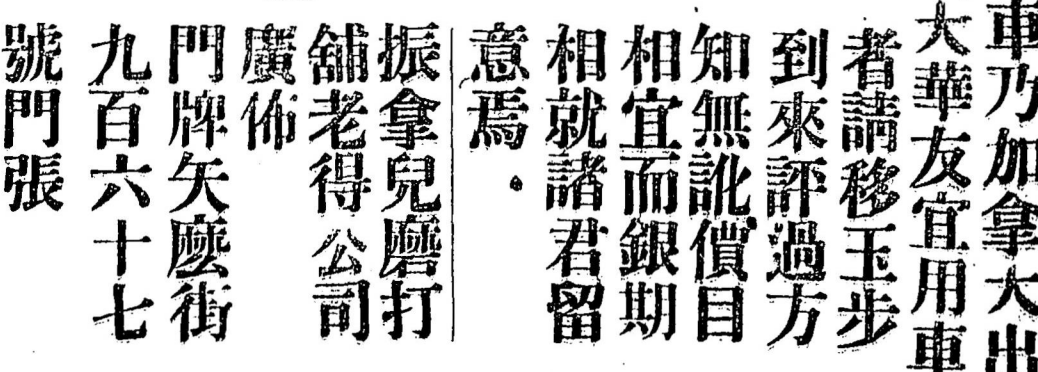 車乃加拿大出
大華友宜用車
者請移玉步
到來評過方
知無訛價目
相宜而銀期
相就諸君留
意焉．
振拿兒磨打
舖老得公司
廣佈
門牌矢麼街
九百六十七
號門張